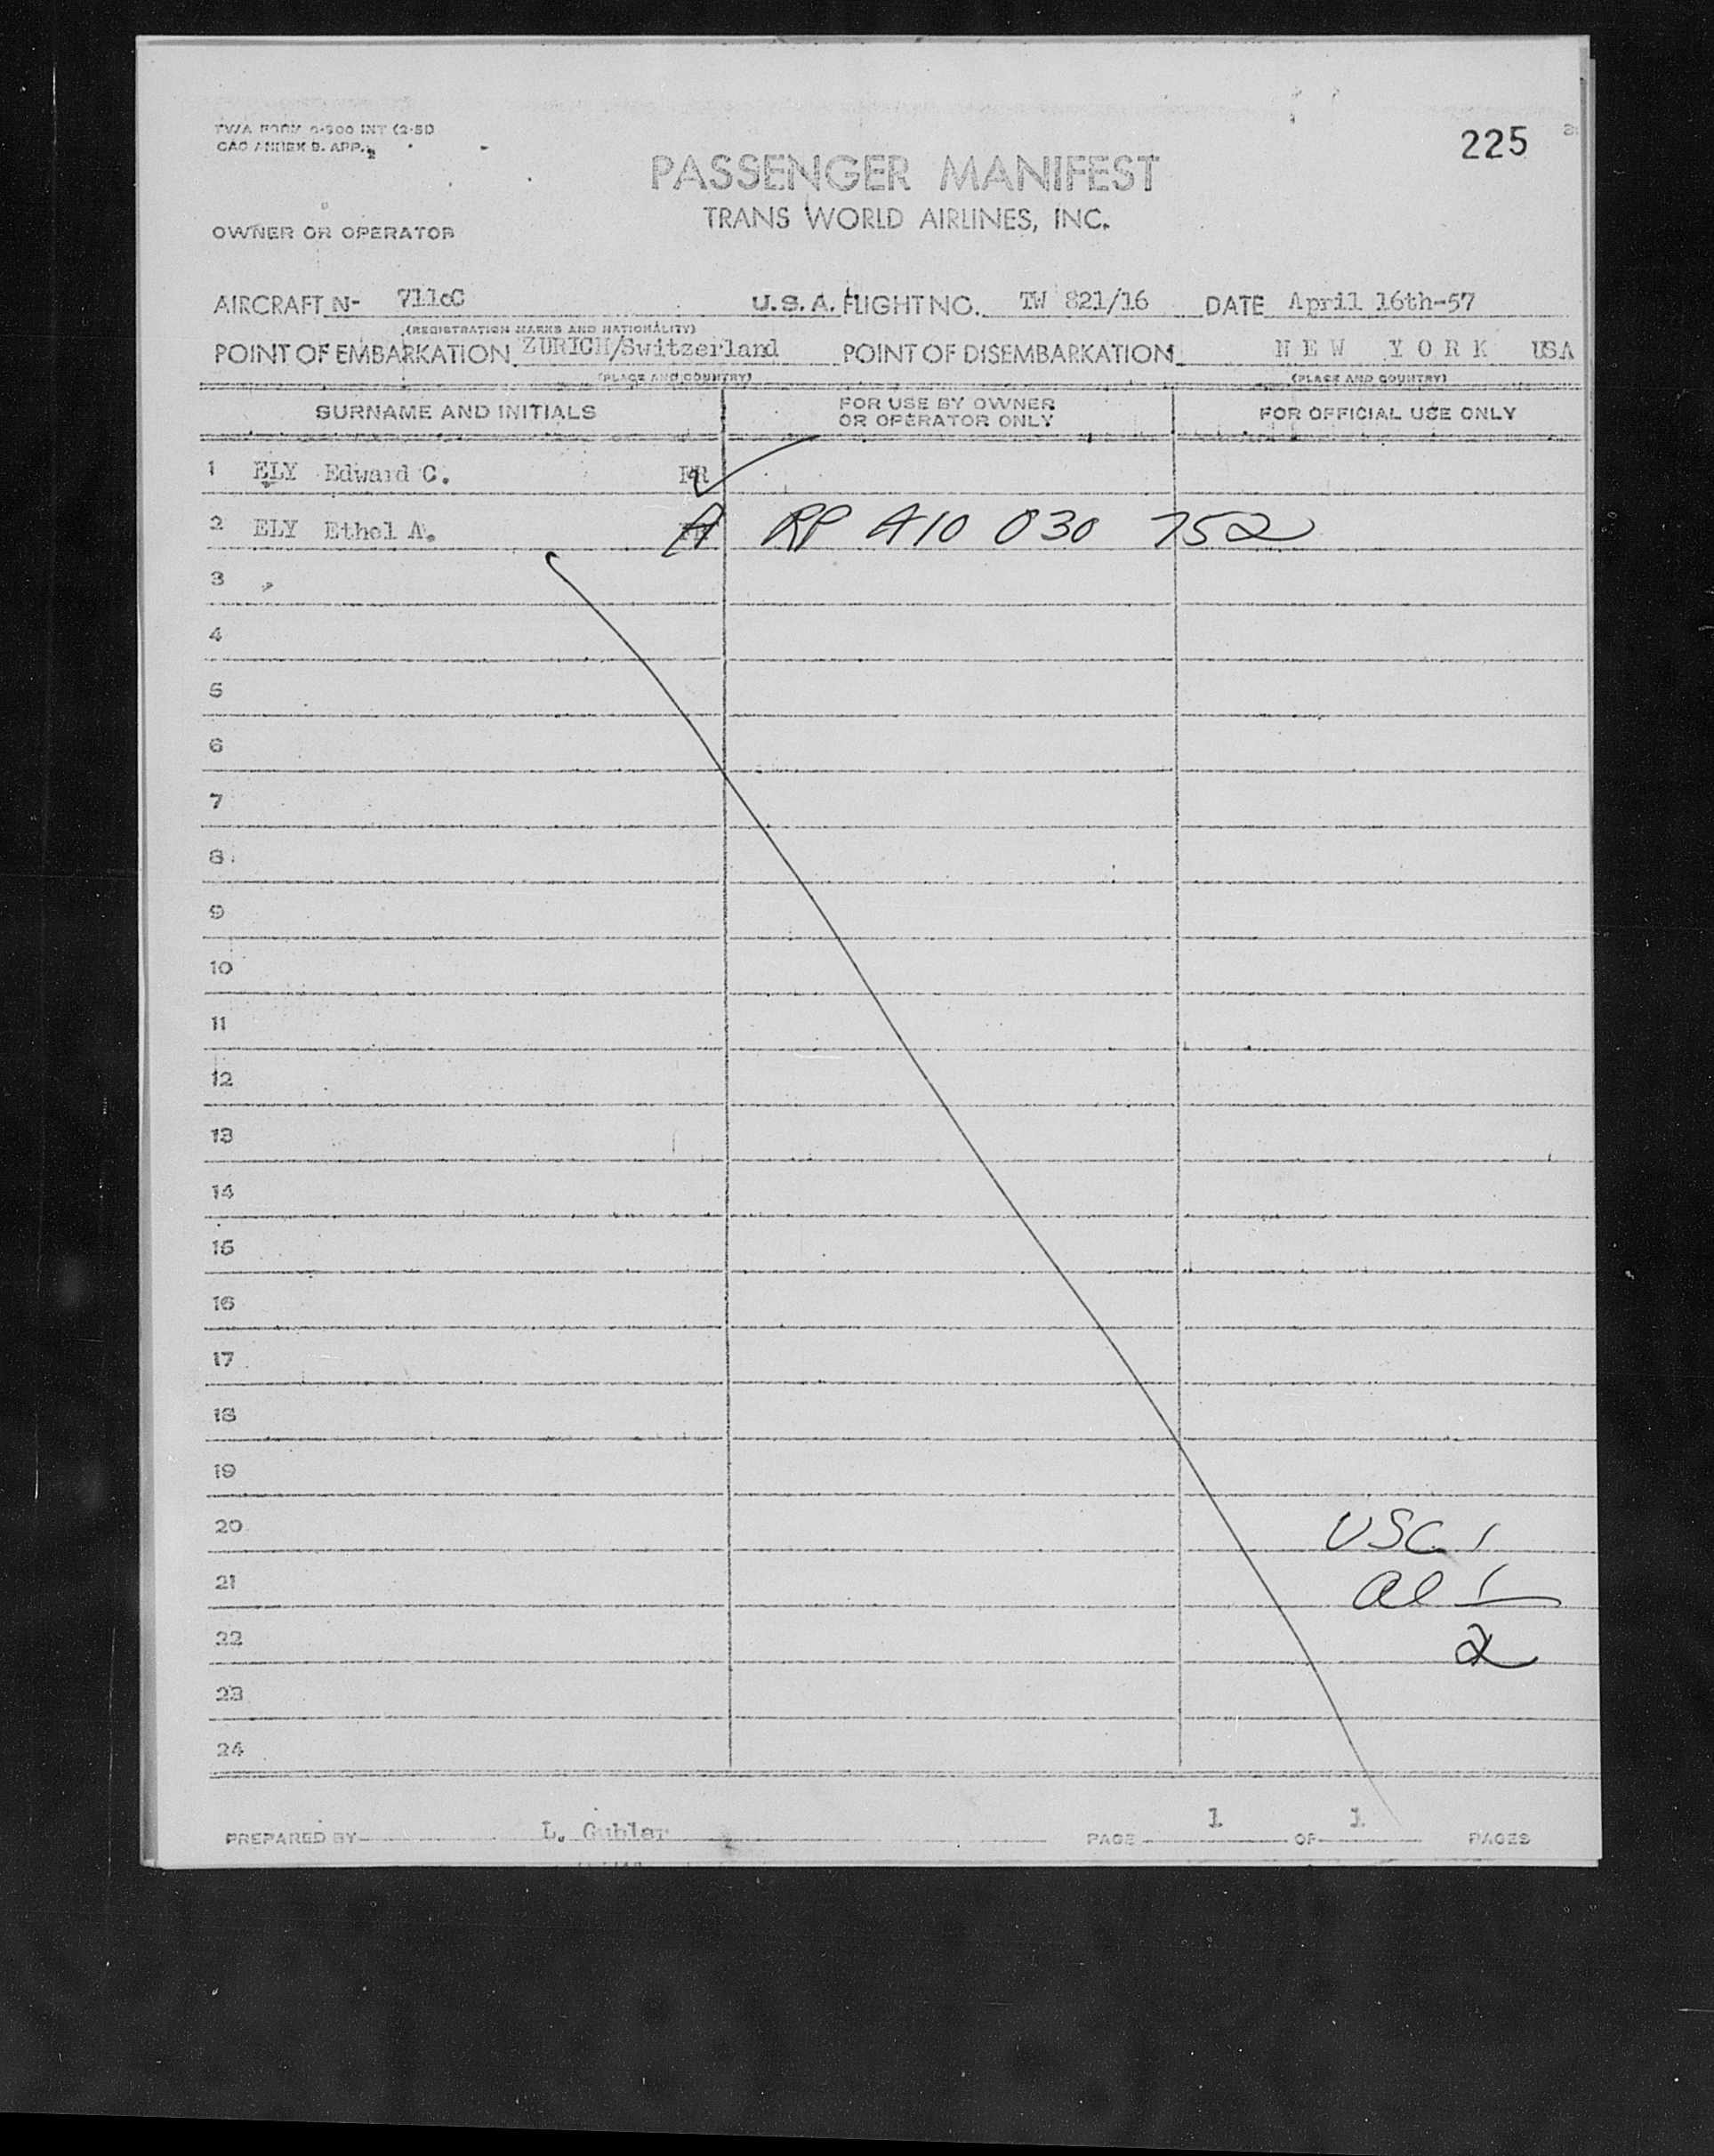 225
PASSENGER MANIFEST
TRANS WORLD AIRLINES, INC.
OWNER OR OPERATOR
AIRCRAFT N- U.S.A. FLIGHT NO. TW 821/16 DATE April 16th-57
(REGISTRATION MARKS AND NATIONALITY)
POINT OF EMBARKATION ZURICH/Switzerland POINT OF DISEMBARKATION NEW YORK USA
(PLACE AND COUNTRY) (PLACE AND COUNTRY)
SURNAME AND INITIALS FOR USE BY OWNER OR OPERATOR ONLY FOR OFFICIAL USE ONLY
1 ELY Edward C.
2 ELY Ethel A. A RP A10 030 752
3
4
5
6
7
8
9
10
11
12
13
14
15
16
17
18
19
20 USC 1
21 al 1
22 2
23
24
PREPARED BY L. PAGE 1 OF 1 PAGES